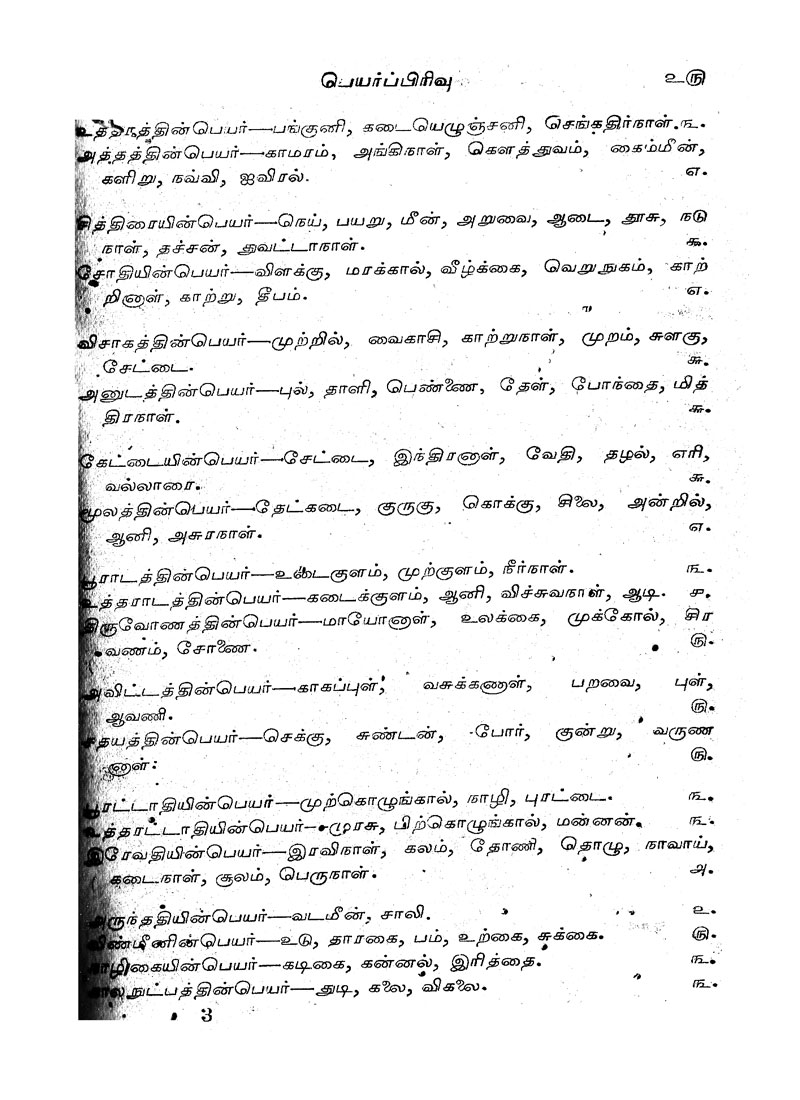 பெயர்ப்பிரிவு ௨௫
உத்தரத்தின்பெயர்—பங்குனி, கடையெழுஞ்சனி, செங்கதிர்நாள். ௩.
அத்தத்தின்பெயர்—காமரம், அங்கிநாள், கௌத்துவம், கைம்மீன்,
களிறு, நவ்வி, ஐவிரல். ௭.
சித்திரையின்பெயர்—நெய், பயறு, மீன், அறுவை, ஆடை, தூசு, நடு
நாள், தச்சன், துவட்டாநாள். ௯.
சோதியின்பெயர்—விளக்கு, மரக்கால், வீழ்க்கை, வெறுநுகம், காற்
றினாள், காற்று, தீபம். ௭.
விசாகத்தின்பெயர்—முற்றில், வைகாசி, காற்றுநாள், முறம், சுளகு,
சேட்டை. ௬.
அனுடத்தின்பெயர்—புல், தாளி, பெண்ணை, தேள், போந்தை, மித்
திரநாள். ௬.
கேட்டையின்பெயர்—சேட்டை, இந்திரனாள், வேதி, தழல், எரி,
வல்லாரை. ௬.
மூலத்தின்பெயர்—தேட்கடை, குருகு, கொக்கு, சிலை, அன்றில்,
ஆனி, அசுரநாள். ௭.
பூராடத்தின்பெயர்—உடைகுளம், முற்குளம், நீர்நாள். ௩.
உத்தராடத்தின்பெயர்—கடைக்குளம், ஆனி, விச்சுவநாள், ஆடி. ௪.
திருவோணத்தின்பெயர்—மாயோனாள், உலக்கை, முக்கோல், சிர
வணம், சோணை. ௫.
அவிட்டத்தின்பெயர்—காகப்புள், வசுக்கணாள், பறவை, புள்,
ஆவணி. ௫.
சதயத்தின்பெயர்—செக்கு, சுண்டன், போர், குன்று, வருண
னாள்: ௫.
பூரட்டாதியின்பெயர்—முற்கொழுங்கால், நாழி, புரட்டை. ௩.
உத்தரட்டாதியின்பெயர்—முரசு, பிற்கொழுங்கால், மன்னன். ௩.
இரேவதியின்பெயர்—இரவிநாள், கலம், தோணி, தொழு, நாவாய்,
கடைநாள், சூலம், பெருநாள். ௮.
அருந்ததியின்பெயர்—வடமீன், சாலி. ௨.
விண்மீனின்பெயர்—உடு, தாரகை, பம், உற்கை, சுக்கை. ௫.
நாழிகையின்பெயர்—கடிகை, கன்னல், இரித்தை. ௩.
காலநுட்பத்தின்பெயர்—துடி, கலை, விகலை. ௩.
3